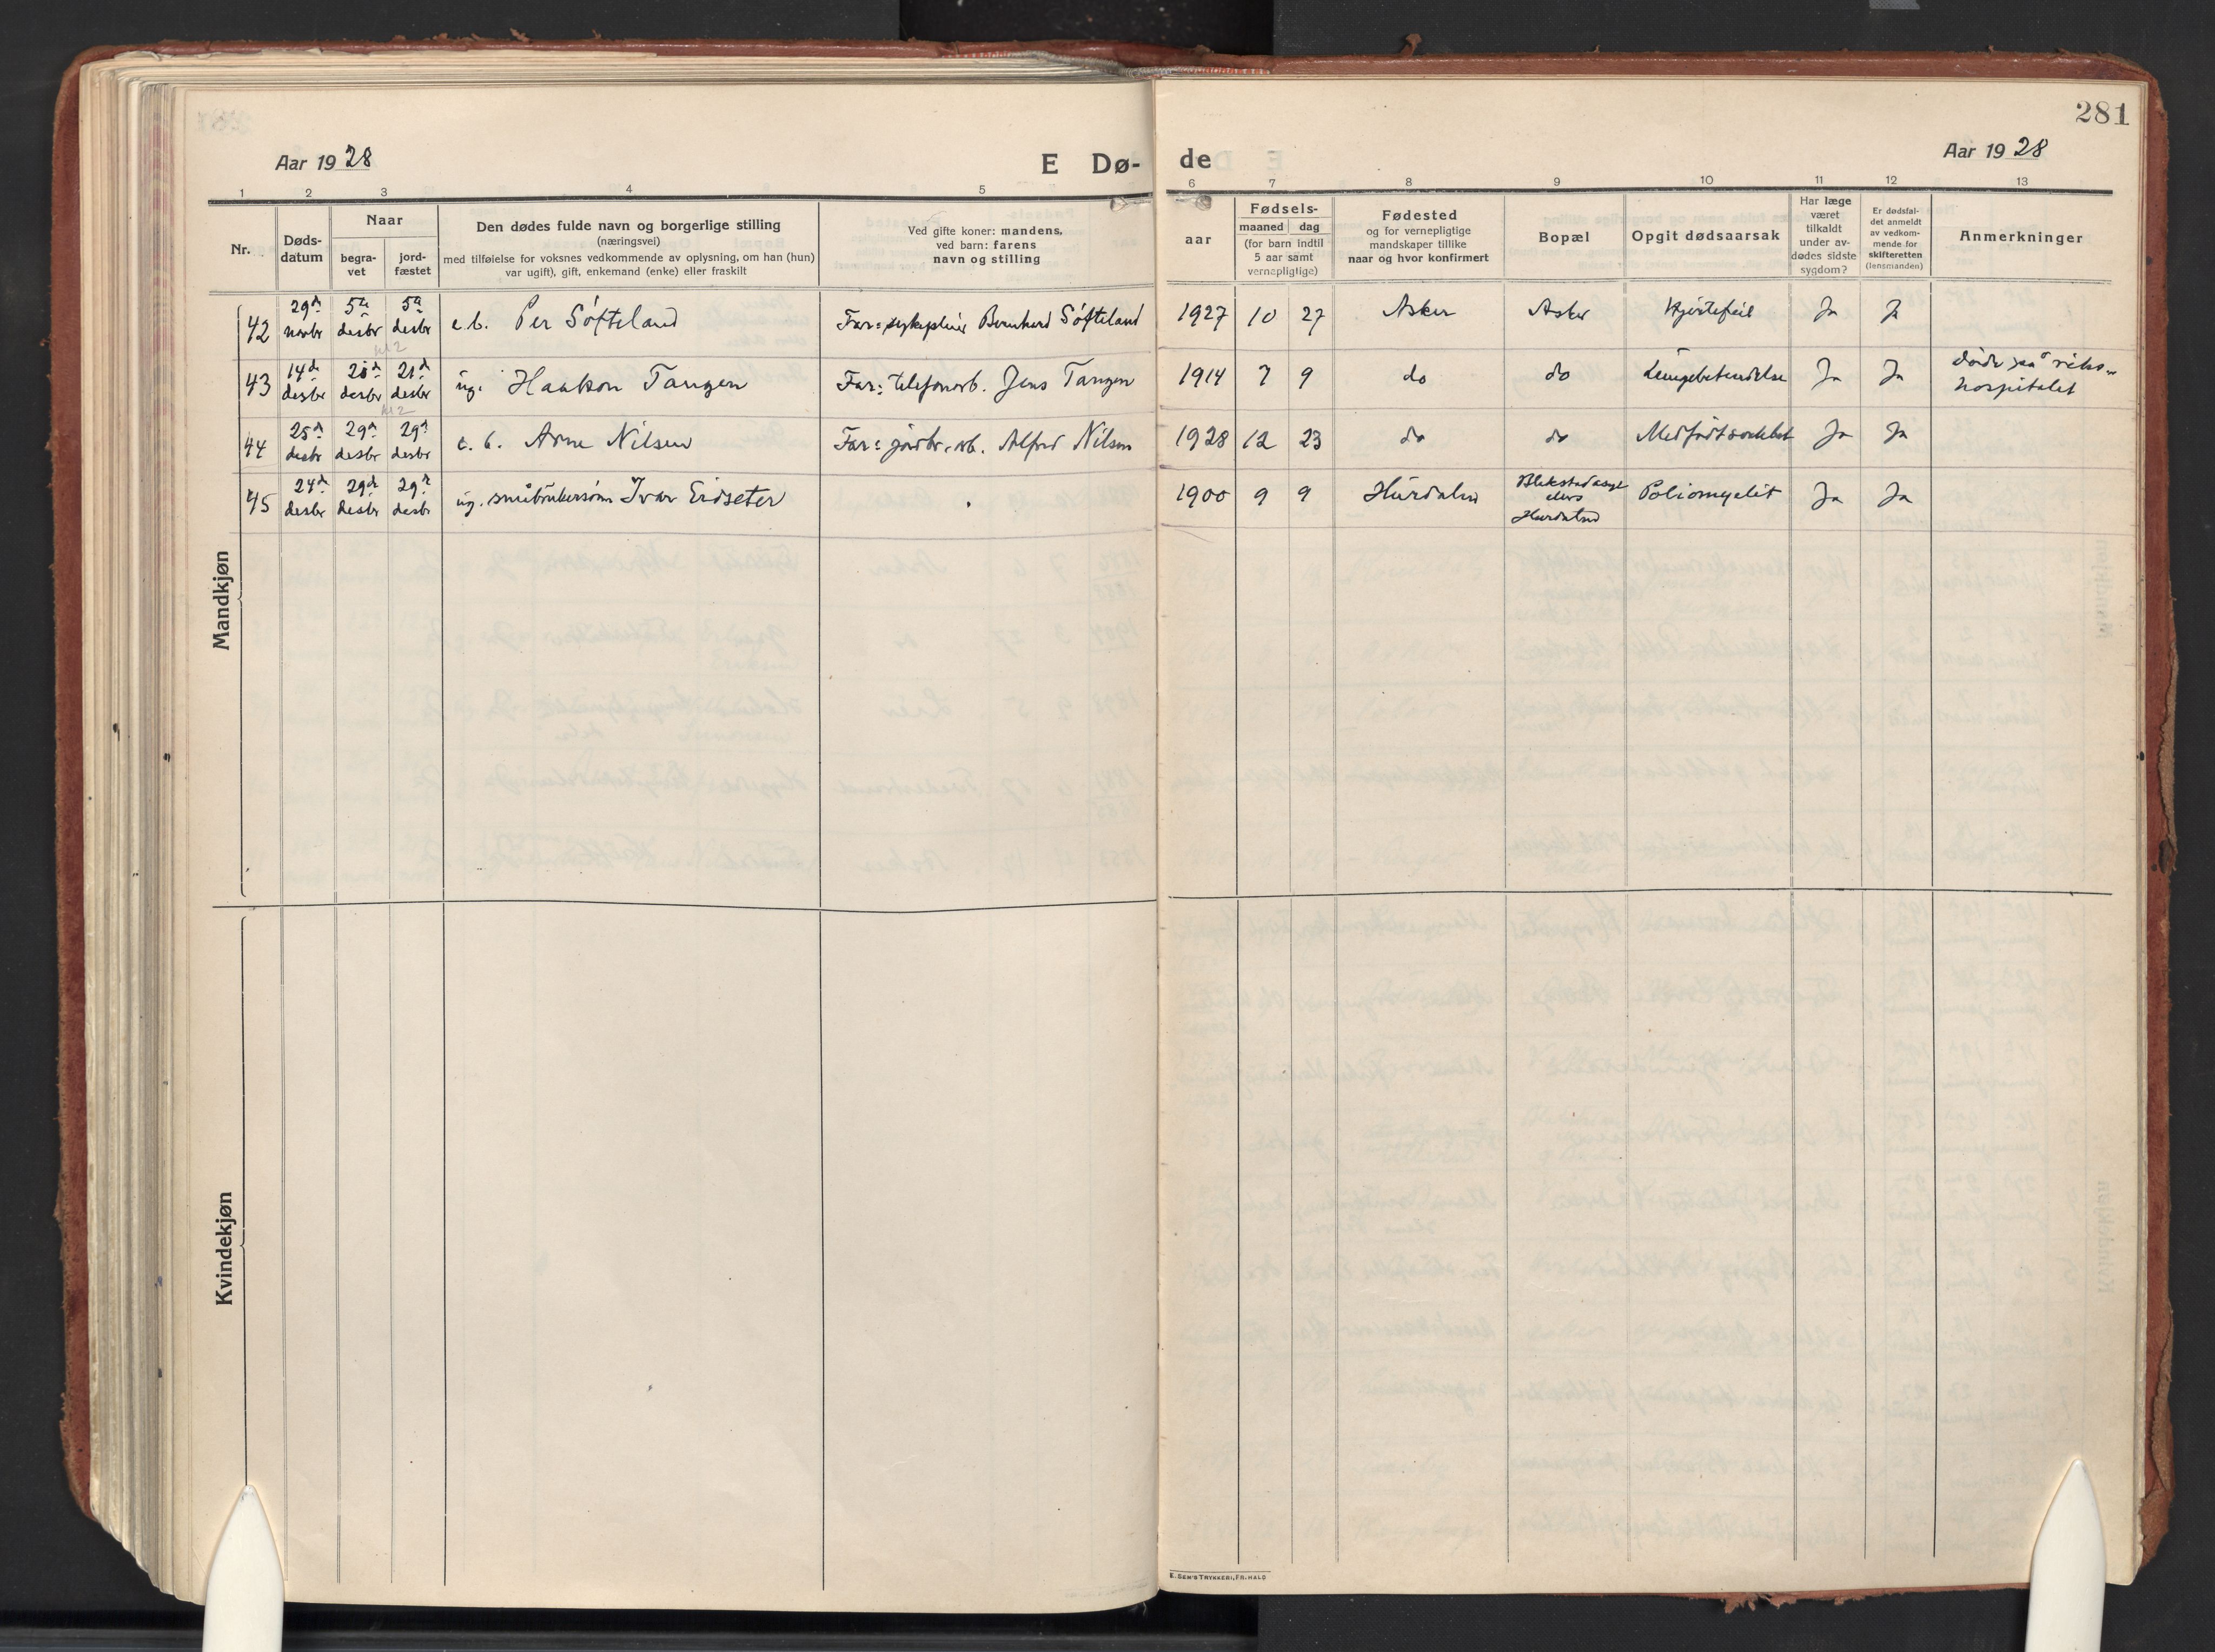 281
Aar 1928
E Dø-
de
Aar 1928
1 2 3 4 5 6 7 8 9 10 11 12 13
Nr.
Døds-
datum
Naar
begra-
vet
jord-
fæstet
Den dødes fulde navn og borgerlige stilling
(næringsvei)
med tilføielse for voksnes vedkommende av oplysning, om han (hun)
var ugift), gift, enkemand (enke) eller fraskilt
Ved gifte koner: mandens,
ved barn: farens
navn og stilling
aar
Fødsels-
maaned dag
(for barn indtil
5 aar samt
vernepligtige)
Fødested
og for vernepligtige
mandskaper tillike
naar og hvor konfirmert
Bopæl
Opgit dødsaarsak
Har læge
været
tilkaldt
under av-
dødes sidste
sygdom?
Er dødsfal-
det anmeldt
av vedkom-
mende for
skifteretten
(lensmanden)
Anmerkninger
Mandkjøn
42 29d novbr 5te desbr 5te desbr e.b. Per Søfteland Far: sykepleier Bernhard Søfteland 1927 10 27 Asker Asker Hjertefeil Ja Ja
43 14de desbr 21d desbr 21d desbr ug. Haakon Tangen Far: telefonarb. Jens Tangen 1914 7 9 do do Lungebetendelse Ja Ja døde på riks-
hospitalet
44 25d desbr 29d desbr 29d desbr e.b. Arne Nilsen Far: jordbr.arb. Alfred Nilsen 1928 12 23 do do Medfødt svakhet Ja Ja
45 24de desbr 29de desbr 29de desbr ug. småbrukersønn Ivar Eidseter 1900 9 9 Hurdalen Blekstad asyl
ellers
Hurdalen Poliomyelit Ja Ja
Kvindekjøn
E. Sem's Trykkeri, Fr.hald